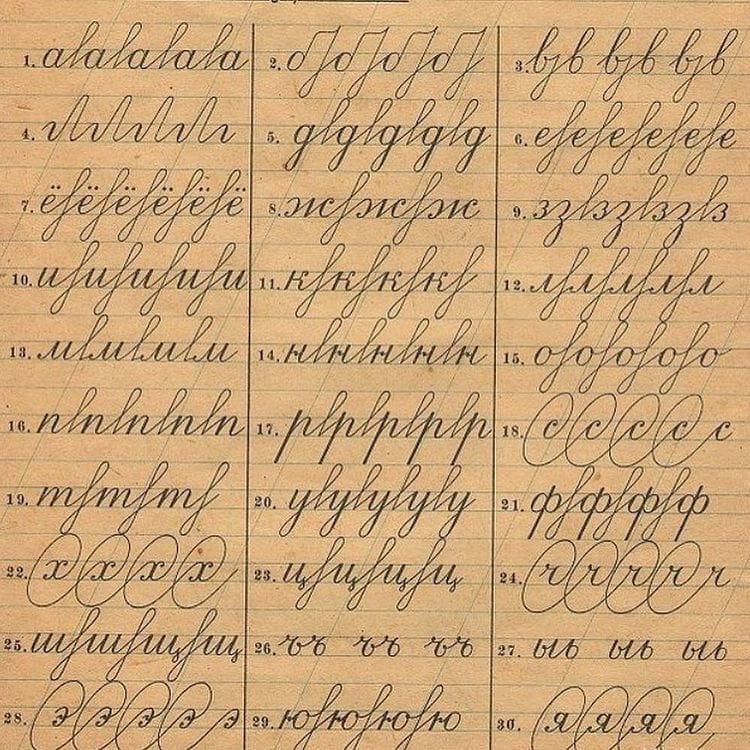 1. а а а а а 2. б б б б 3. вв вв вв
4. г г г г г 5. д д д д д 6. е е е е е е
7. ё ё ё ё ё ё 8. ж ж ж 9. з з з з з з
10. и и и и и 11. к к к к 12. л л л л л
13. м м м м м 14. н н н н н 15. о о о о о
16. п п п п п 17. р р р р р 18. с с с с с
19. т т т 20. у у у у у 21. ф ф ф ф
22. х х х х 23. ц ц ц ц 24. ч ч ч ч ч
25. ш ш щ щ 26. ъъ ъъ ъъ 27. ыь ыь ыь
28. э э э э э 29. ю ю ю ю 30. я я я я